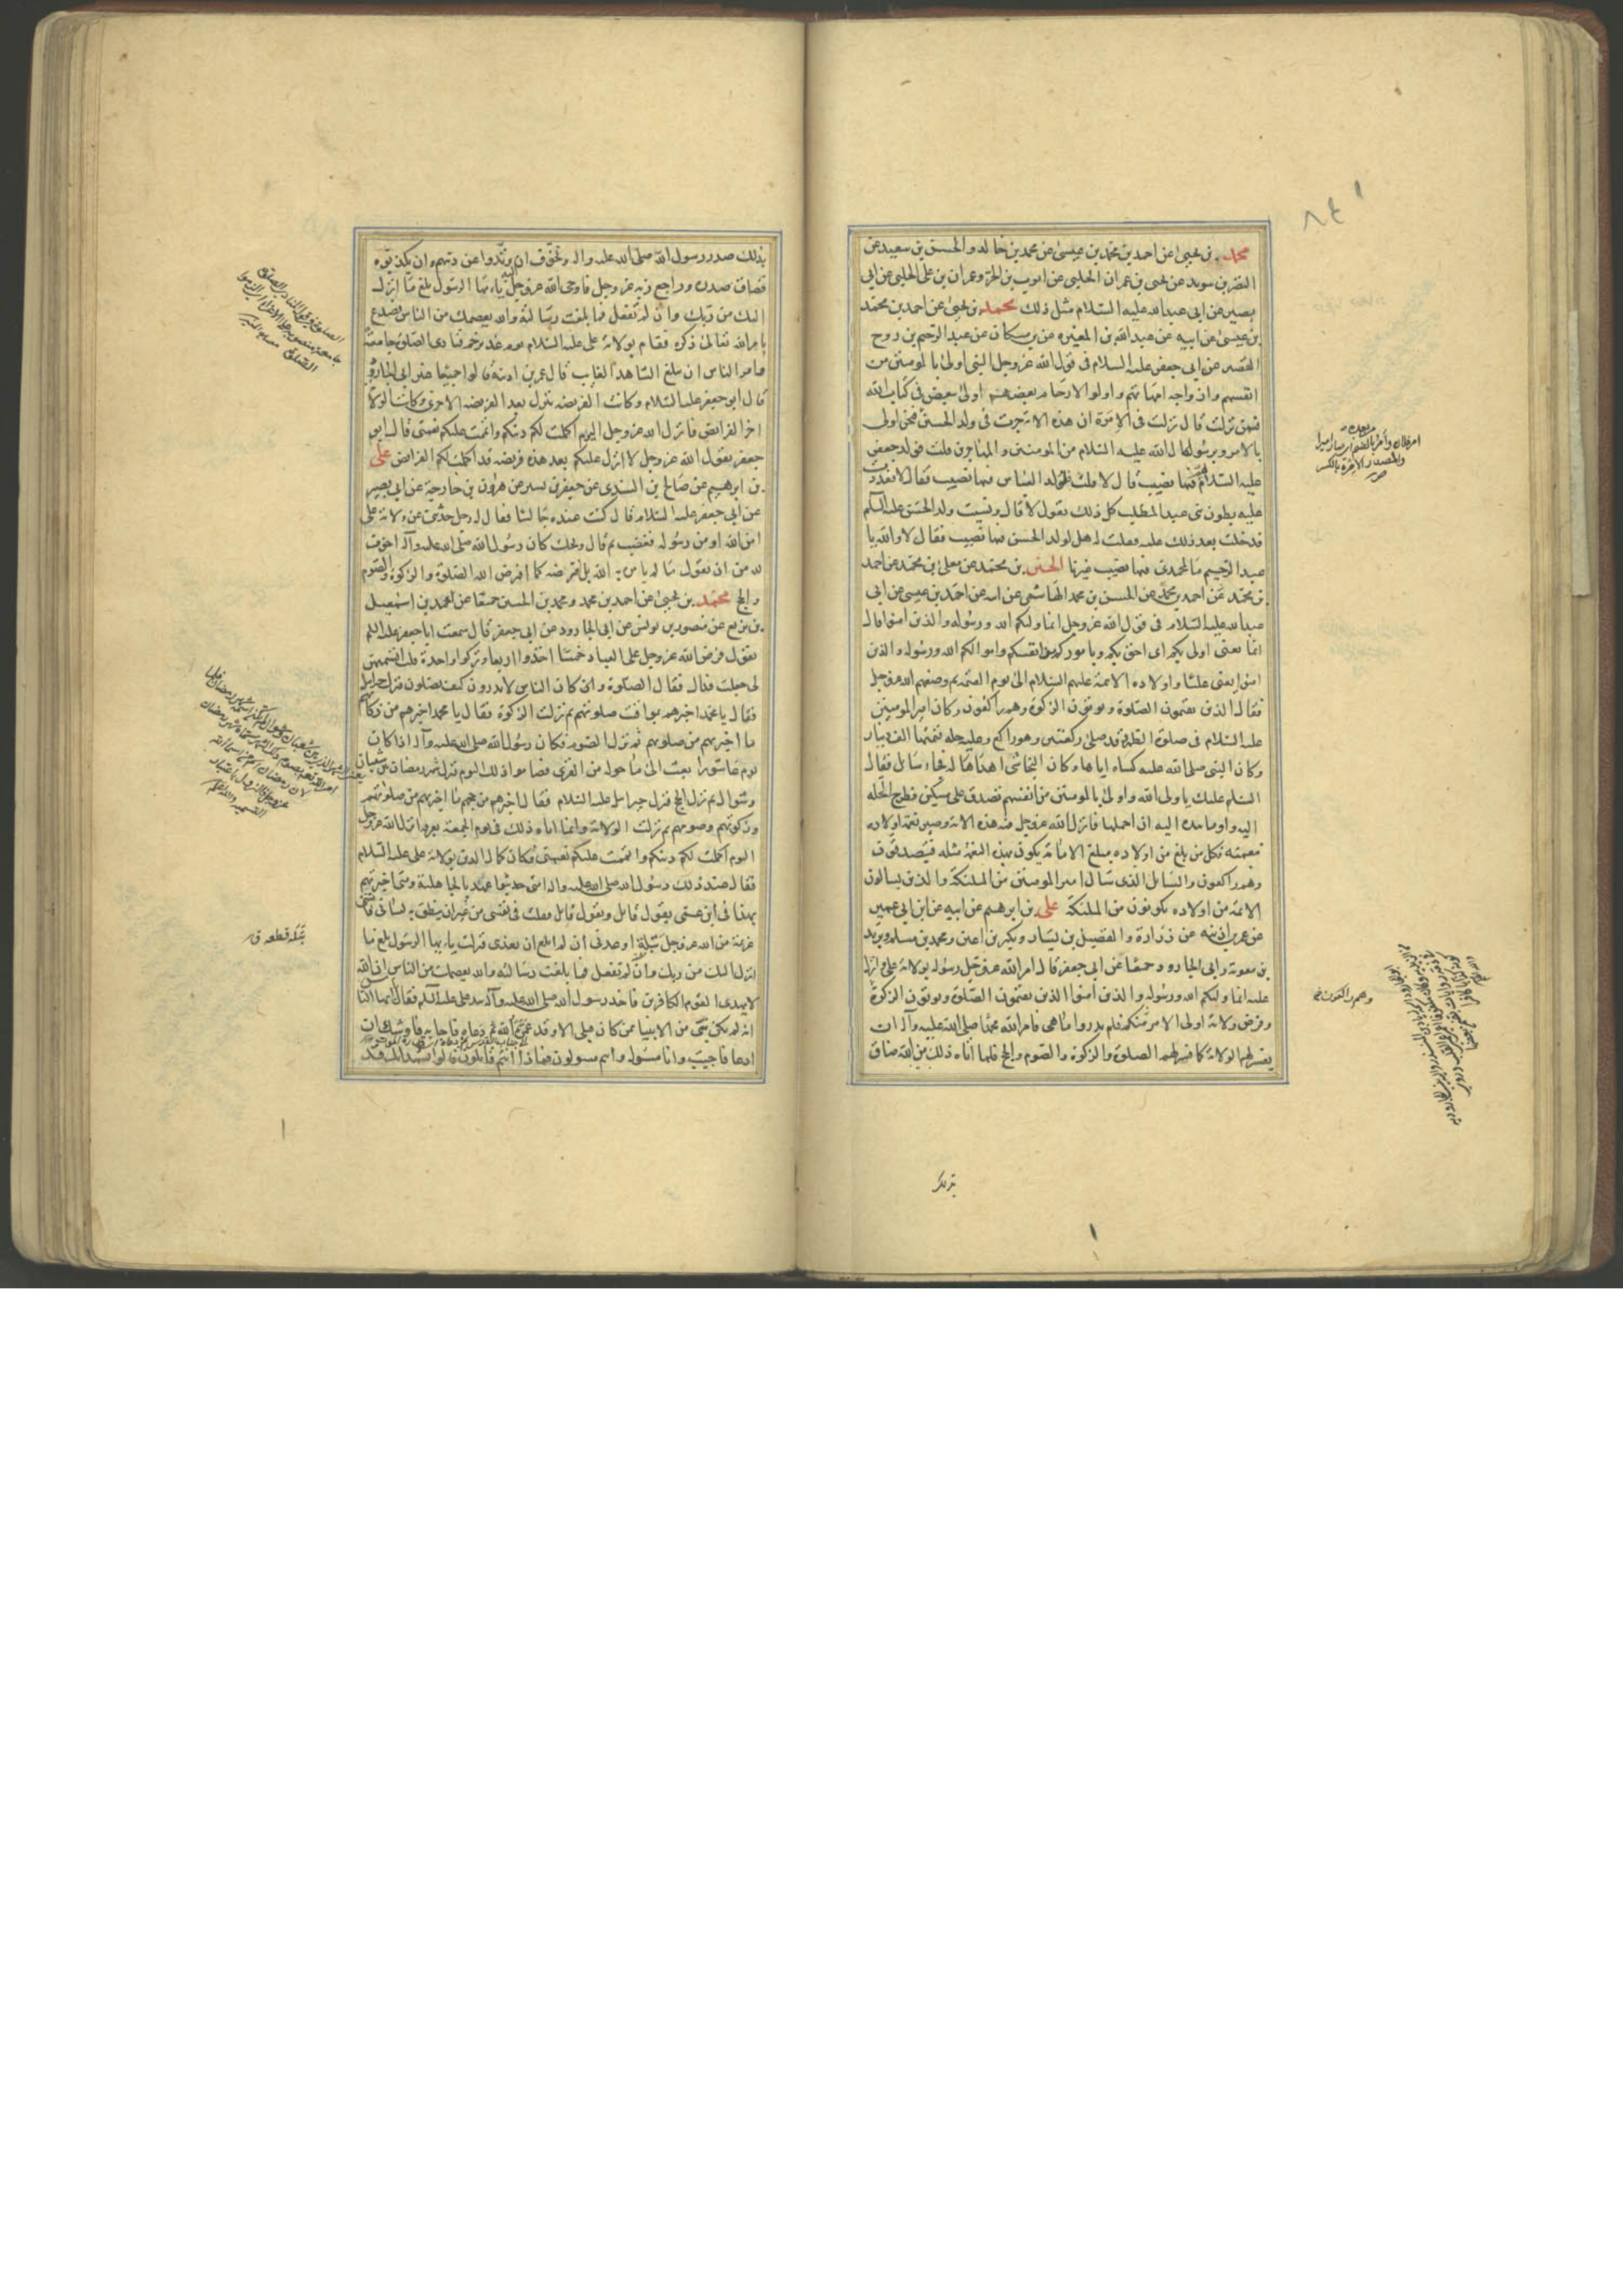 محمد بن يحيى عن احمد بن محمد بن عيسى عن محمد بن خالد والحسين بن سعيد عن
النضر بن سويد عن يحيى بن عمران الحلبي عن ايوب بن الحر وعمران بن على الحلبى عن ابى
بصير عن ابى عبد الله عليه السلام مثل ذلك محمد بن يحيى عن احمد بن محمد
بن عيسى عن ابيه عن عبد الله بن المغيره عن بن مسكان عن عبد الرحيم بن روح
القصير عن ابى جعفر عليه السلام فى قول الله عز وجل النبى اولى بالمومنين من
انفسهم وازواجه امهاتهم واولوا الارحام بعضهم اولى ببعض فى كتاب الله
فيمن نزلت قال نزلت فى الامرة ان هذه الاية جرت فى ولد الحسين فنحن اولى
بالامر وبرسول الله عليه السلام من المومنين والمهاجرين قلت فولد جعفر
عليه السلام لهم فيها نصيب قال لا قلت فلولد العباس فيها نصيب فقال لا فعددت
عليه بطون بنى عبد المطلب كل ذلك يقول لا قال ونسيت ولد الحسن عليه السلم
فدخلت بعد ذلك عليه فقلت له هل لولد الحسن فيها نصيب فقال لا والله يا
عبد الرحيم ما لمحمدى فيها نصيب غيرنا الحسين بن محمد عن معلى بن محمد عن احمد
بن محمد عن الحسن بن محمد الهاشمى عن ابيه عن احمد بن عيسى عن ابى
عبد الله عليه السلام فى قول الله عز وجل انما وليكم الله ورسوله والذين امنوا قال
انما يعنى اولى بكم اى احق بكم وباموركم وانفسكم واموالكم الله ورسوله والذين
امنوا يعنى عليا واولاده الائمة عليهم السلام الى يوم القيمة ثم وصفهم الله عز وجل
فقال الذين يقيمون الصلوة ويوتون الزكوة وهم راكعون وكان امير المومنين
عليه السلام فى صلوة الظهر وقد صلى ركعتين وهو راكع وعليه حلة قيمتها الف دينار
وكان النبى صلى الله عليه كساه اياها وكان النجاشى اهداها له فجاء سائل فقال
السلم عليك يا ولى الله واولى بالمومنين من انفسهم تصدق على مسكين فطرح الحله
اليه واوما بيده اليه ان احملها فانزل الله عز وجل فيه هذه الاية وصير نعمة اولاده
بنعمته فكل من بلغ من اولاده مبلغ الامامة يكون بهذه النعمة مثله فيتصدقون
وهم راكعون والسايل الذى سال امير المومنين من الملئكة والذين يسالون
الائمة من اولاده يكونون من الملئكة على بن ابرهيم عن ابيه عن ابن ابى عمير
عن عمر بن اذينه عن زرارة والفضيل بن يسار وبكير بن اعين ومحمد بن مسلم وبريد
بن معوية وابى الجارود جميعا عن ابى جعفر قال امر الله عز وجل رسوله بولاية على وانزل
عليه انما وليكم الله ورسوله والذين امنوا الذين يقيمون الصلوة ويوتون الزكوة
وفرض ولاية اولى الامر منكم فلم يدروا ما هى فامر الله محمدا صلى الله عليه وآله ان
يفسر لهم الولاية كما فسر لهم الصلوة والزكوة والصوم والحج فلما اتاه ذلك من الله ضاق
وهم راكعون
بذلك
بذلك صدر رسول الله صلى الله عليه وآله وتخوف ان يرتدوا عن دينهم وان يكذبوه
فضاق صدره وراجع ربه عز وجل فاوحى الله عز وجل اليه يا ايها الرسول بلغ ما انزل
اليك من ربك وان لم تفعل فما بلغت رسالته والله يعصمك من الناس فصدع
بامر الله تعالى ذكره فقام بولاية على عليه السلام يوم غدير خم فنادى الصلوة جامعة
وامر الناس ان يبلغ الشاهد الغايب قال عمر بن اذينة قالوا جميعا غير ابى الجارود
قال ابو جعفر عليه السلام وكانت الفريضه تنزل بعد الفريضه الاخرى وكانت الولاية
اخر الفرائض فانزل الله عز وجل اليوم اكملت لكم دينكم واتممت عليكم نعمتى قال ابو
جعفر يقول الله عز وجل لا انزل عليكم بعد هذه فريضه قد اكملت لكم الفرائض على
بن ابرهيم عن صالح بن السندى عن جعفر بن بشير عن هرون بن خارجة عن ابى بصير
عن ابى جعفر عليه السلام قال كنت عنده جالسا فقال له رجل حدثنى عن ولاية على
امن الله او من رسوله فغضب ثم قال ويحك كان رسول الله صلى الله عليه وآله اخوف
لله من ان يقول ما لم يامره به الله بل افترضه كما افترض الله الصلوة والزكوة والصوم
والحج محمد بن يحيى عن احمد بن محمد ومحمد بن الحسين جميعا عن محمد بن اسمعيل
بن بزيع عن منصور بن يونس عن ابى الجارود عن ابى جعفر قال سمعت ابا جعفر عليه السلم
يقول فرض الله عز وجل على العباد خمسا اخذوا اربعا وتركوا واحدة قلت اتسميهن
لى جعلت فداك فقال الصلوة وكان الناس لا يدرون كيف يصلون فنزل جبرئيل
فقال يا محمد اخبرهم بمواقيت صلوتهم ثم نزلت الزكوة فقال يا محمد اخبرهم من زكاتهم
ما اخبرتهم من صلوتهم ثم نزل الصوم فكان رسول الله صلى الله عليه وآله اذا كان
يوم عاشورا بعث الى ما حوله من القرى فصاموا ذلك اليوم فنزل شهر رمضان بين شعبان
وشوال ثم نزل الحج فنزل جبرئيل عليه السلام فقال اخبرهم من حجهم ما اخبرتهم من صلوتهم
وزكوتهم وصومهم ثم نزلت الولاية وانما اتاه ذلك فى يوم الجمعة بعرفة انزل الله عز وجل
اليوم اكملت لكم دينكم واتممت عليكم نعمتى وكان كمال الدين بولاية على عليه السلام
فقال عند ذلك رسول الله صلى الله عليه وآله امتى حديثوا عهد بالجاهلية ومتى اخبرتهم
بهذا فى ابن عمى يقول قائل ويقول قايل فقلت فى نفسى من غير ان ينطق به لسانى فاتتنى
عزيمة من الله عز وجل بتلة اوعدنى ان لم ابلغ ان يعذبنى فنزلت يا ايها الرسول بلغ ما
انزل اليك من ربك وان لم تفعل فما بلغت رسالته والله يعصمك من الناس ان الله
لا يهدى القوم الكافرين فاخذ رسول الله صلى الله عليه وآله بيد على عليه السلم فقال ايها الناس
انه لم يكن نبى من الانبيا ممن كان قبلى الا وقد عمره الله ثم دعاه فاجابه فاوشك ان
ادعا فاجيب وانا مسئول وانتم مسولون فماذا انتم قايلون فقالوا نشهد انك قد
بتله قطعه ق